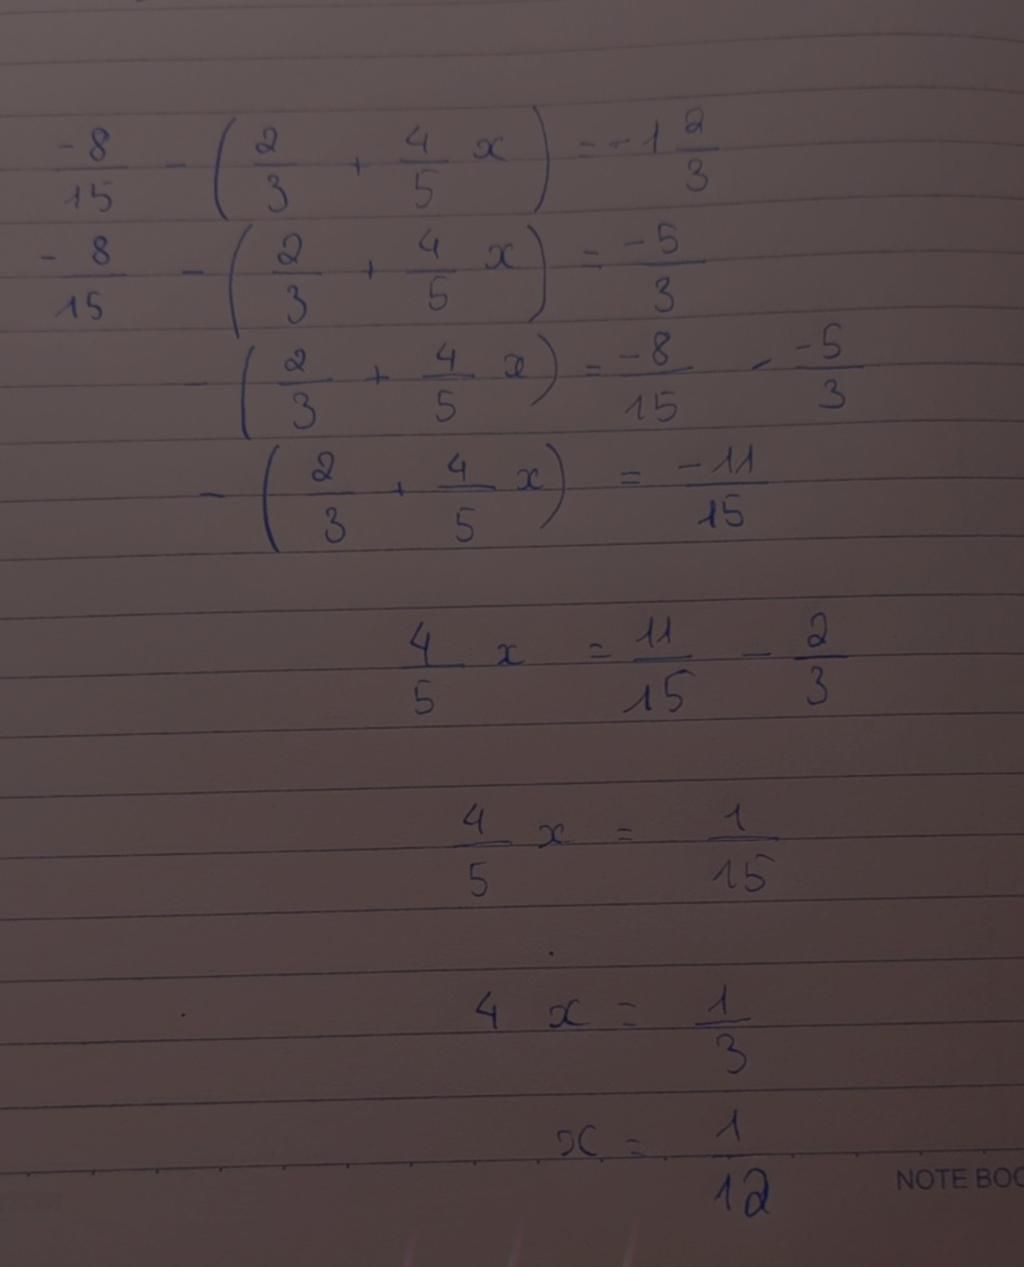 -8/15 - (2/3 + 4/5 x) = -1 2/3
-8/15 - (2/3 + 4/5 x) = -5/3
- (2/3 + 4/5 x) = -8/15 - -5/3
- (2/3 + 4/5 x) = -11/15
4/5 x = 11/15 - 2/3
4/5 x = 1/15
4 x = 1/3
x = 1/12
NOTE BOO